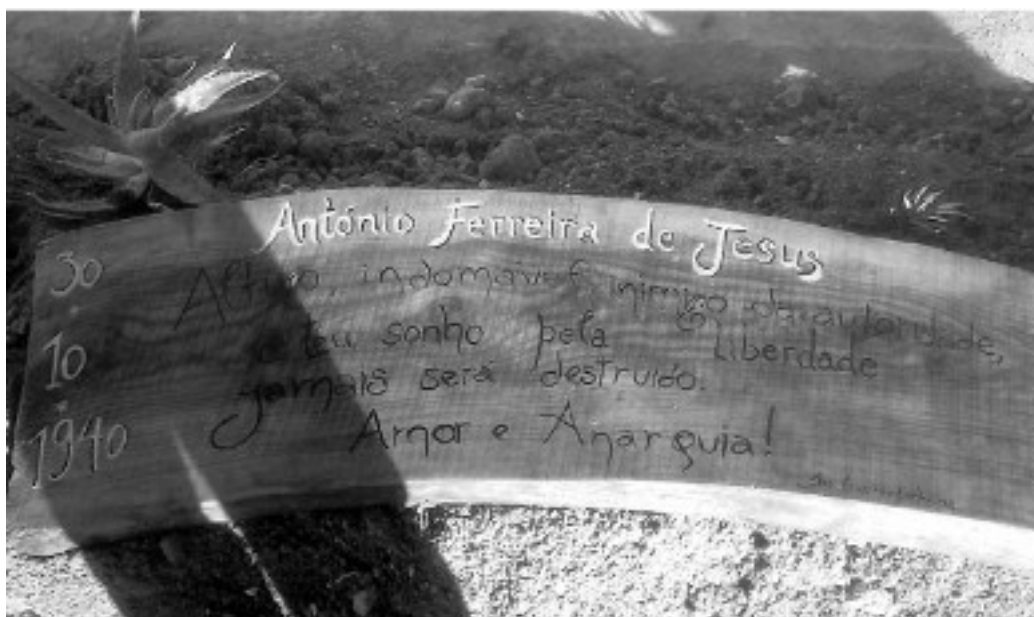 António Ferreira de Jesus
30
10
1940
Altivo, indomável, inimigo da autoridade,
o teu sonho pela Liberdade
jamais será destruído.
Amor e Anarquia!